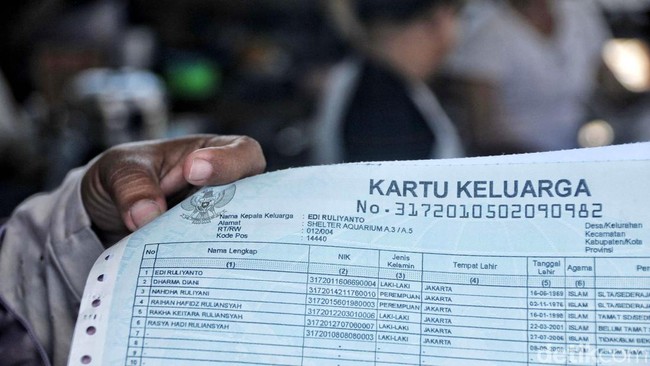 KARTU KELUARGA
No. 3172010502090982
Nama Kepala Keluarga : EDI RULIYANTO
Alamat : SHELTER AQUARIUM A.3 / A.5
RT/RW : 012/004
Kode Pos : 14440
Desa/Kelurahan
Kecamatan
Kabupaten/Kota
Provinsi
No Nama Lengkap NIK Jenis Kelamin Tempat Lahir Tanggal Lahir Agama
(1) (2) (3) (4) (5) (6)
1 EDI RULIYANTO 3172011606690004 LAKI-LAKI JAKARTA 16-06-1969 ISLAM SLTA/SEDERAJA
2 DHARMA DIANI 3172014211760010 PEREMPUAN JAKARTA ISLAM SLTA/SEDERAJ
3 NAHDHA RULIYANI 3172015601980003 PEREMPUAN JAKARTA 16-01-1998 ISLAM TAMAT SD/SEDE
4 RAIHAN HAFIDZ RULIANSYAH LAKI-LAKI JAKARTA 22-03-2001 ISLAM BELUM TAMAT
5 RAKHA KEITARA RULIANSYAH 3172012707060007 LAKI-LAKI JAKARTA 27-07-2006 ISLAM TIDAK/BLM
6 RASYA HADI RULIANSYAH 3172010808080003 LAKI-LAKI JAKARTA ISLAM
7
8
9
10
detikcom